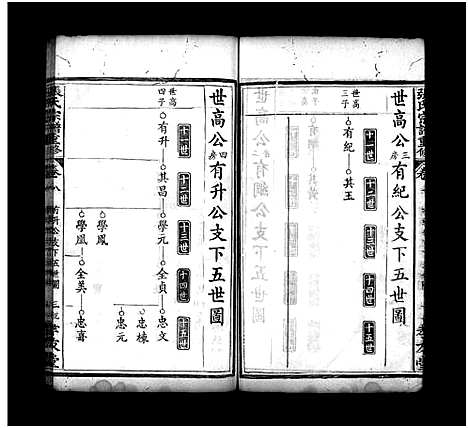 張氏宗譜重修
世高公三房有紀公支下五世圖
世高三子
十一世
十二世
十三世
十四世
十五世
有紀
其玉
世高公四房有升公支下五世圖
十一世
十二世
十三世
十四世
十五世
世高四子
有升
其昌
學元
全貞
忠文
忠棟
忠元
學鳳
學凰
全美
忠喜
張氏宗譜重修
卷八
有升公支下五世圖
孝友堂